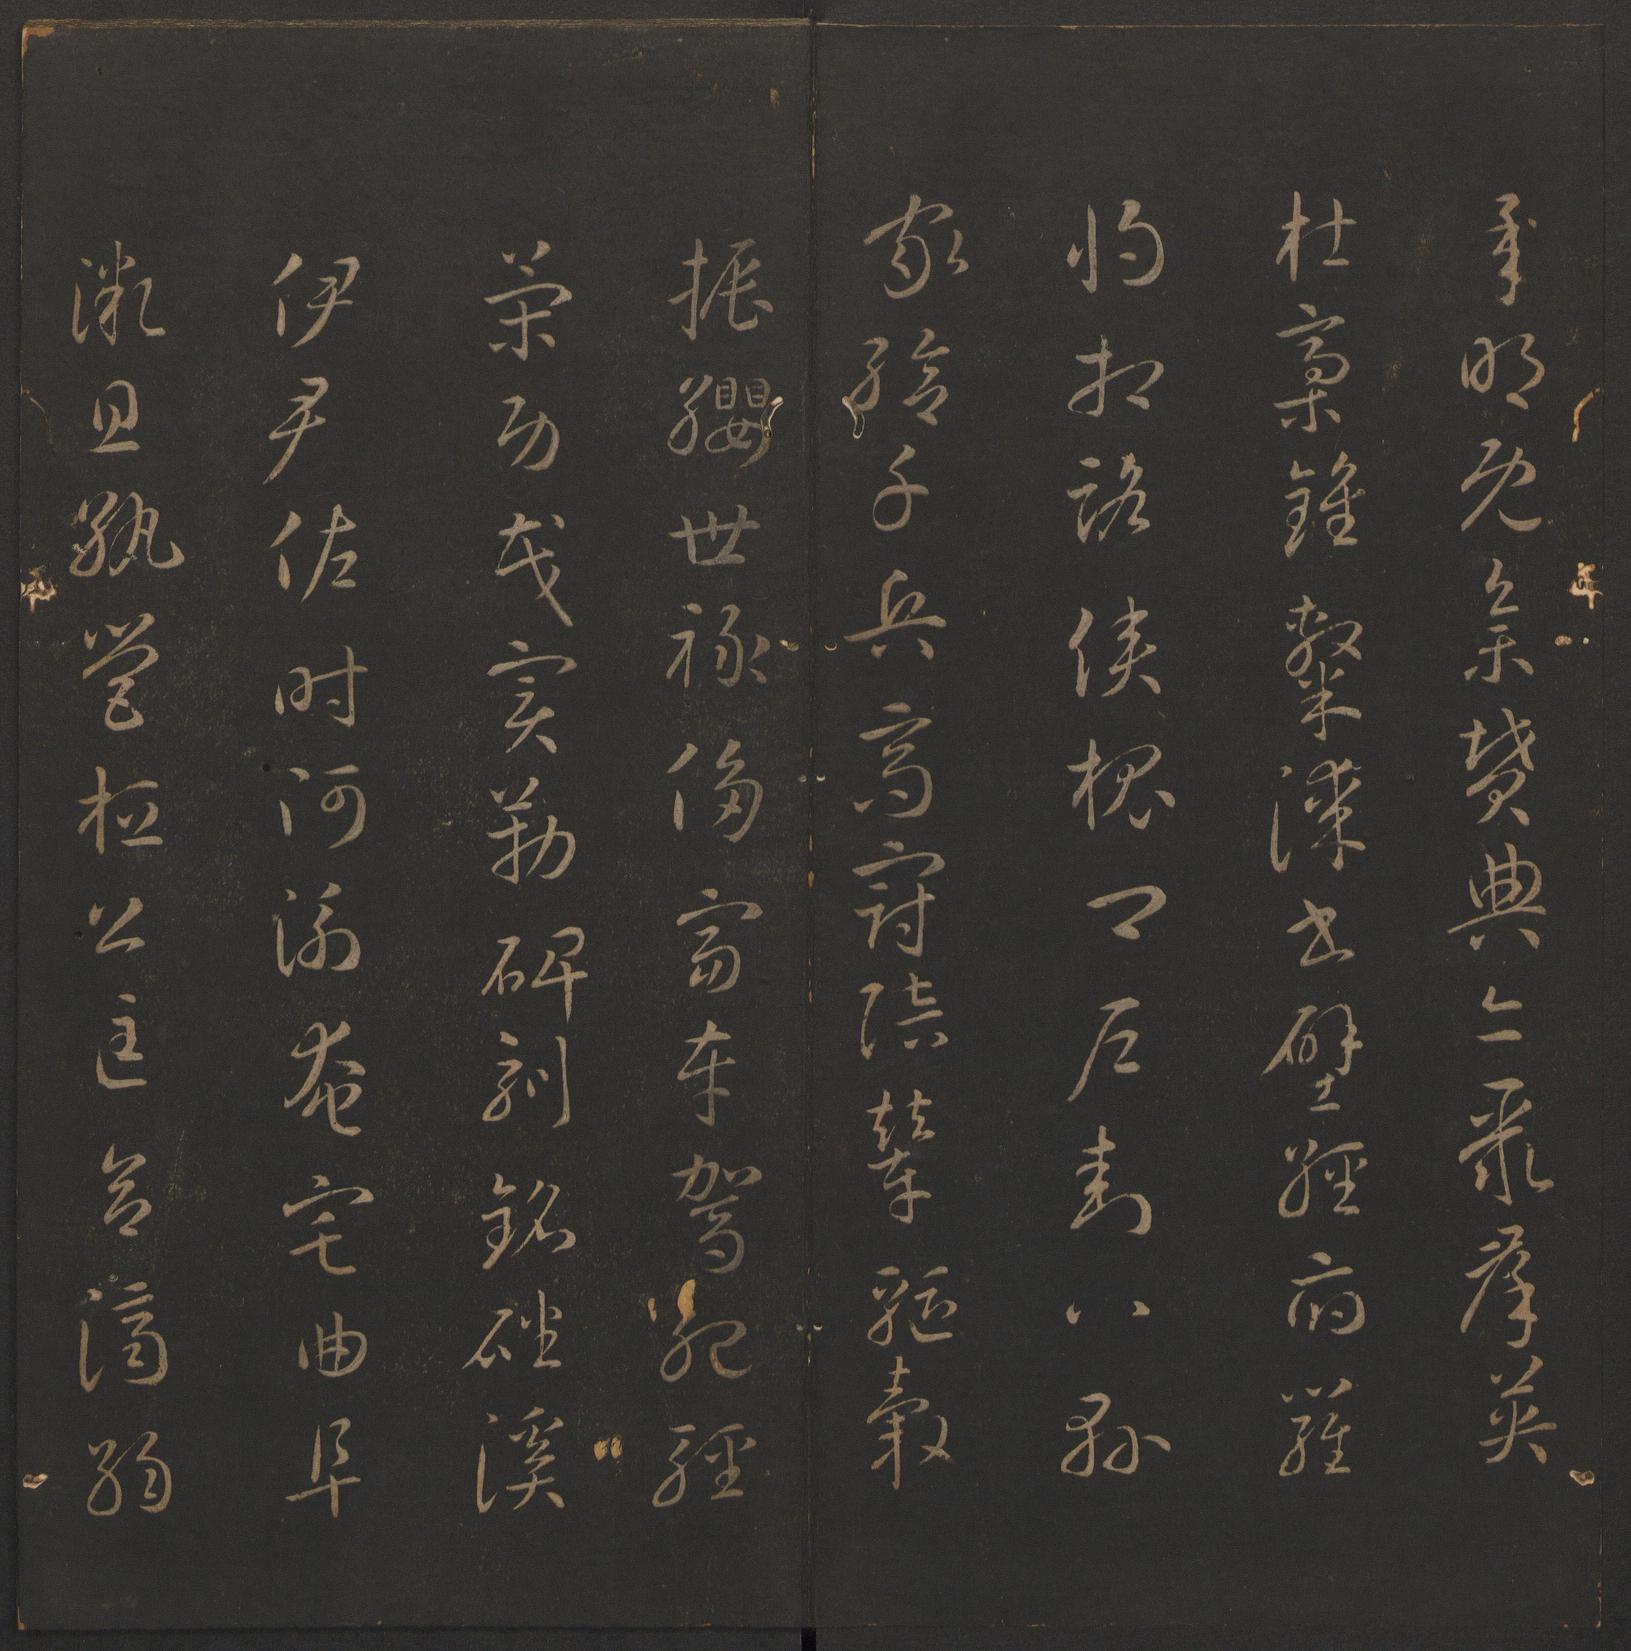 承明既集墳典亦聚群英
杜槀鍾隸漆書壁經府羅
將相路俠槐卿戶封八縣
家給千兵高冠陪輦驅轂
振纓世祿侈富車駕肥輕
策功茂實勒碑刻銘磻溪
伊尹佐時阿衡奄宅曲阜
微旦孰營桓公匡合濟弱